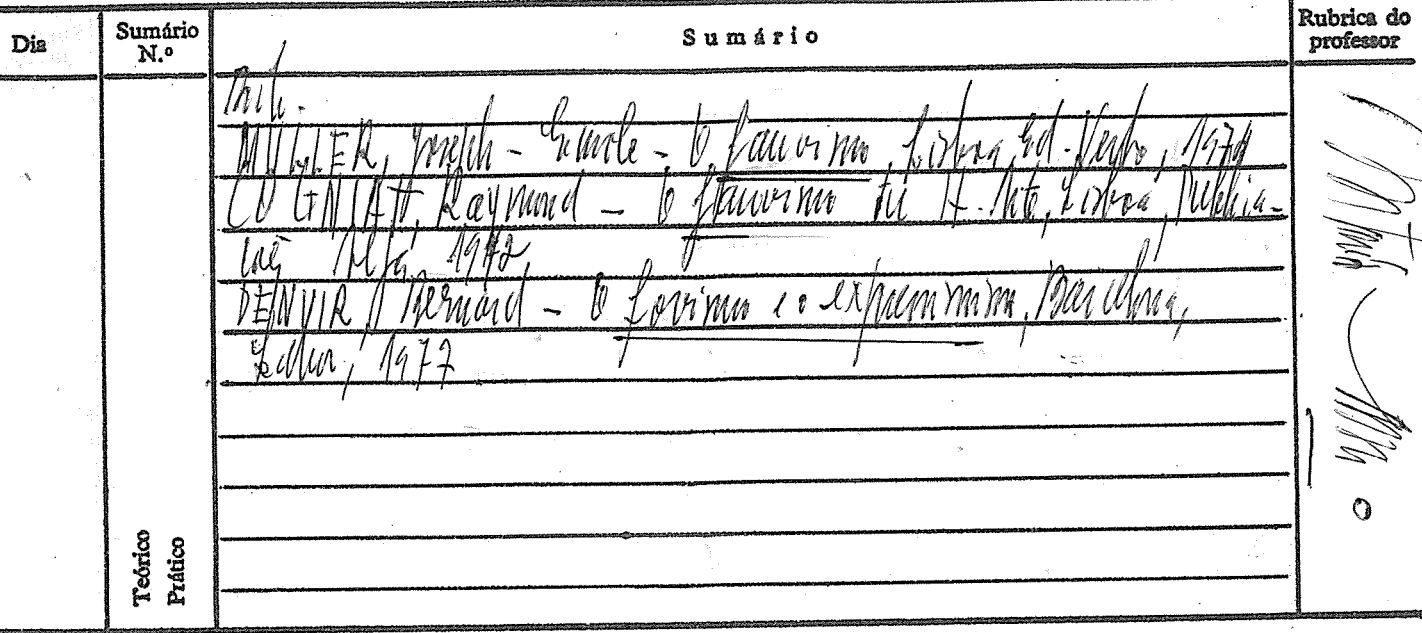 Dia
Sumário N.º
Sumário
Rubrica do professor
Bib.
MULLER, Joseph-Emile - O fauvismo, Lisboa, Ed. Verbo, 1979
COGNIAT, Raymond - O fauvismo in H. Arte, Lisboa, Publica-
ções Alfa, 1972
DENVIR, Bernard - O fovismo e o expressionismo, Barcelona,
Labor, 1977
Teórico
Prático